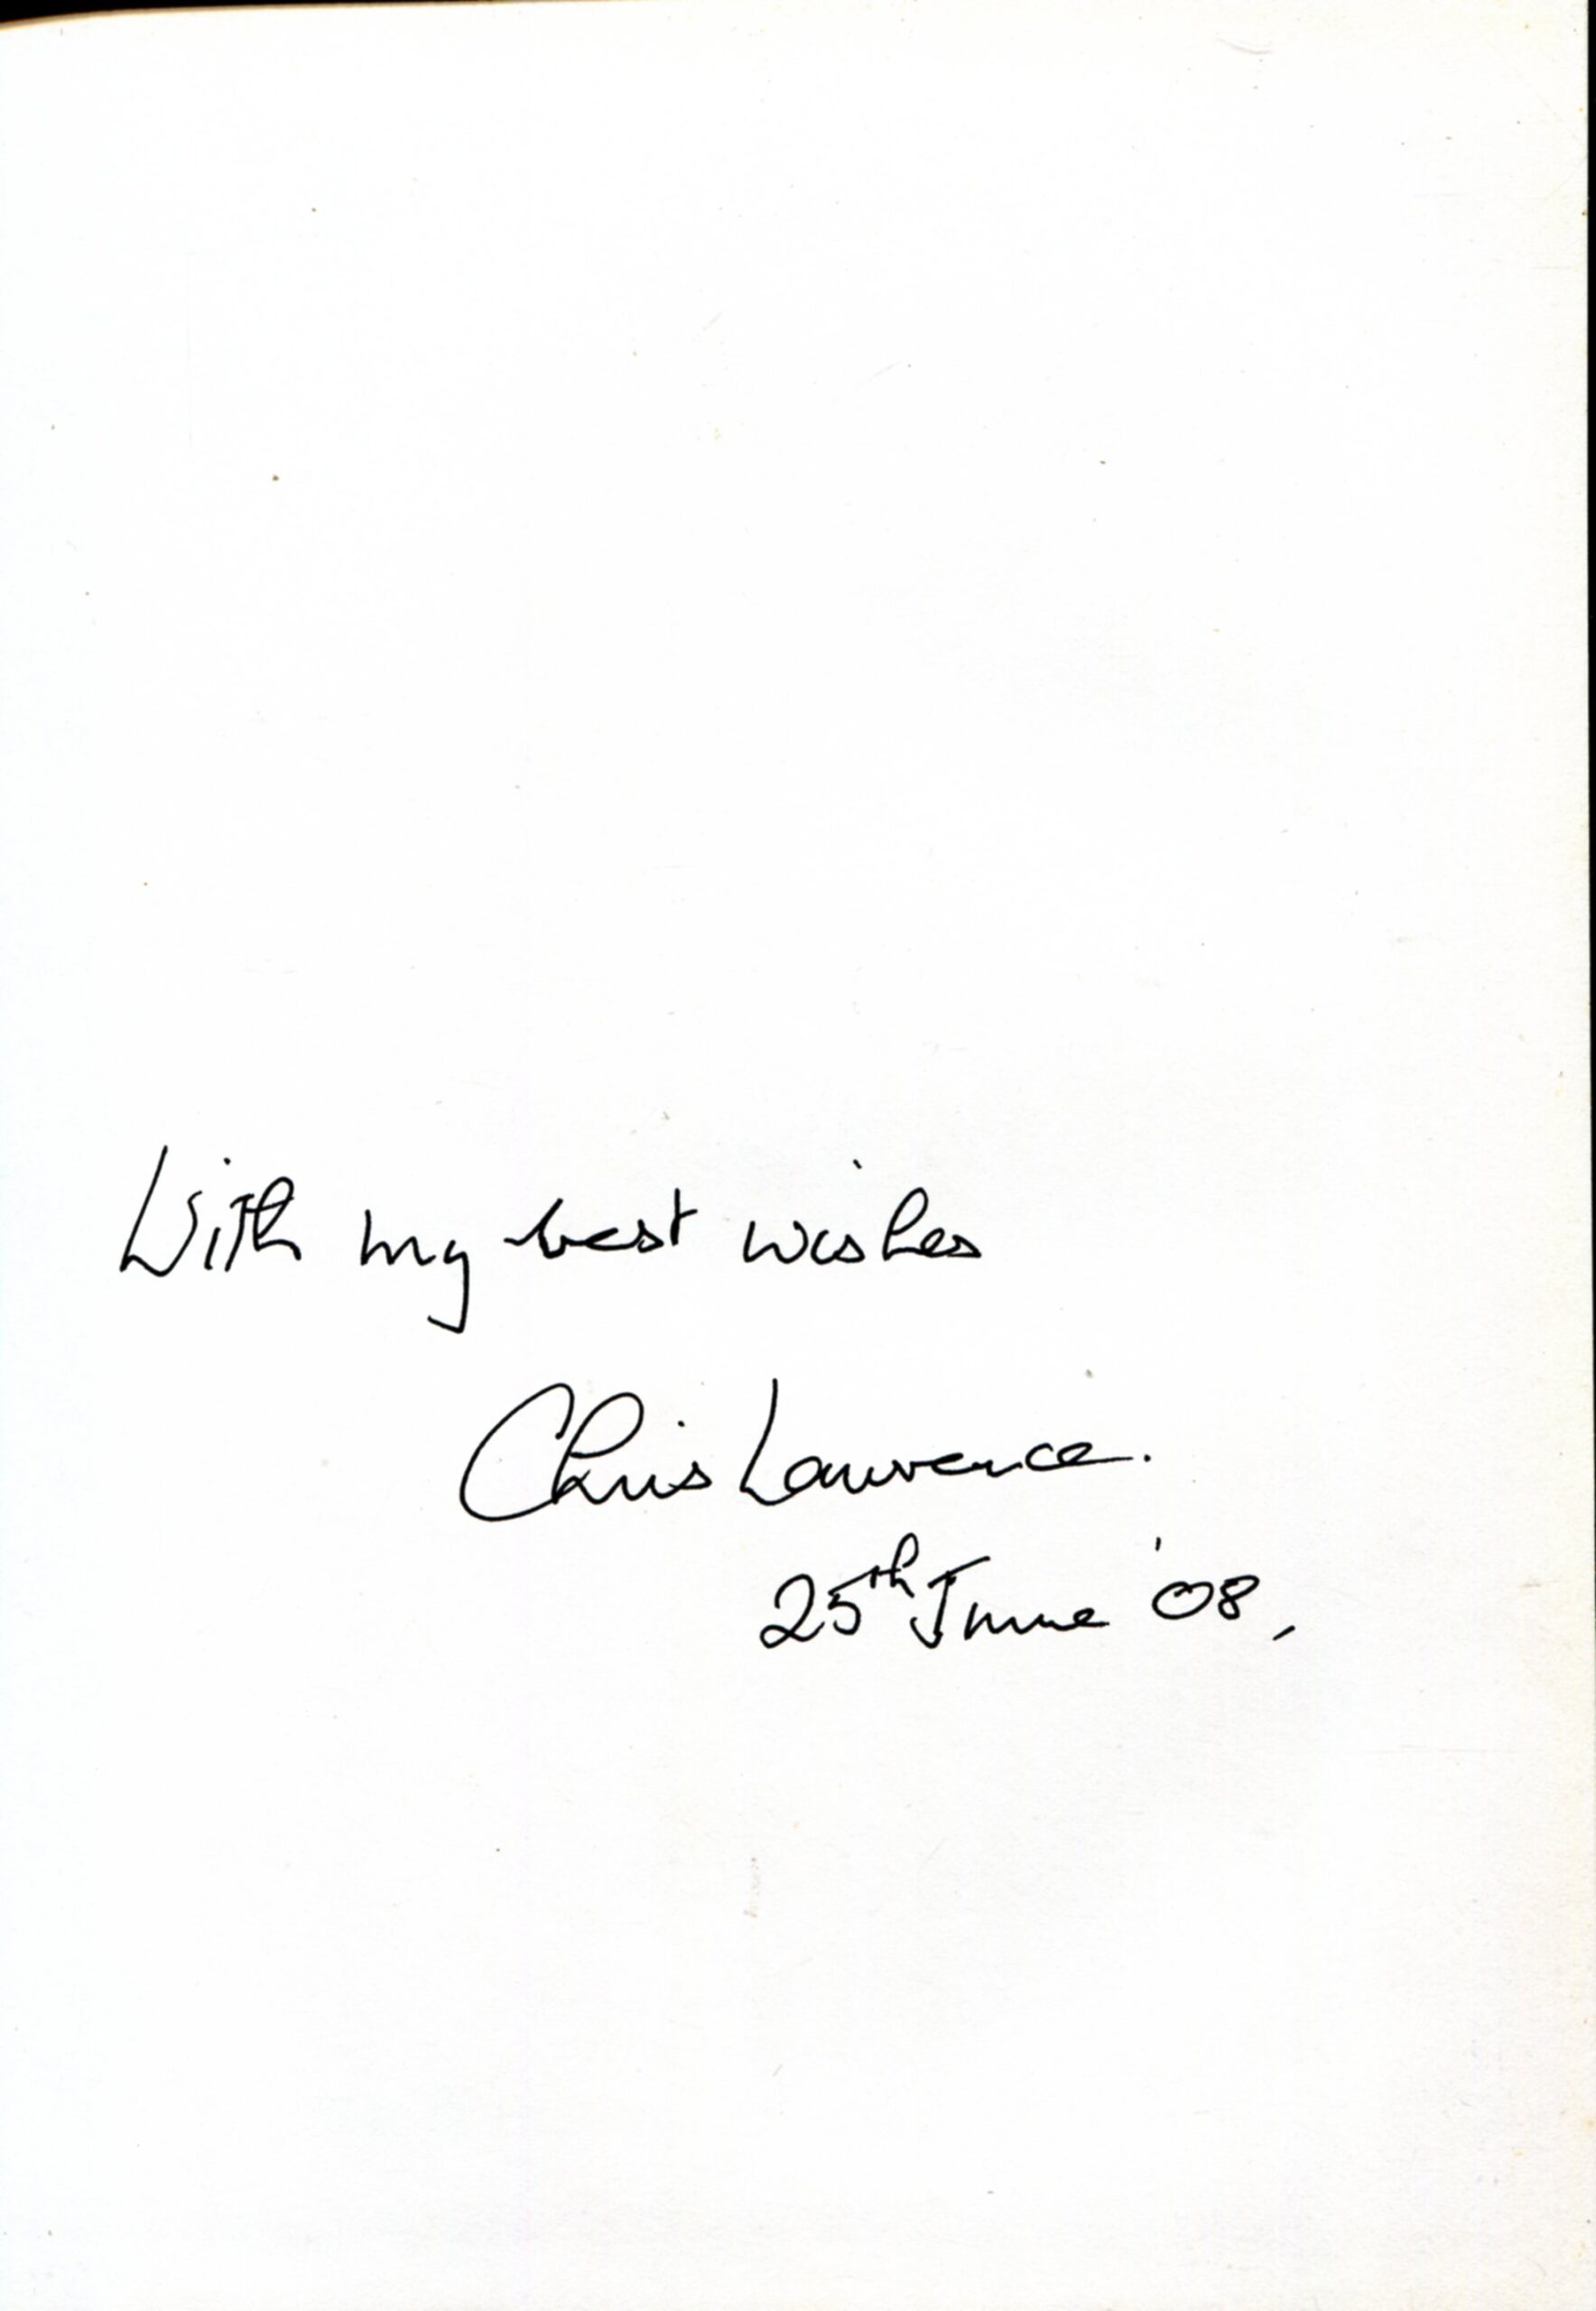 With my best wishes
Chris Lawrence.
25th June '08,